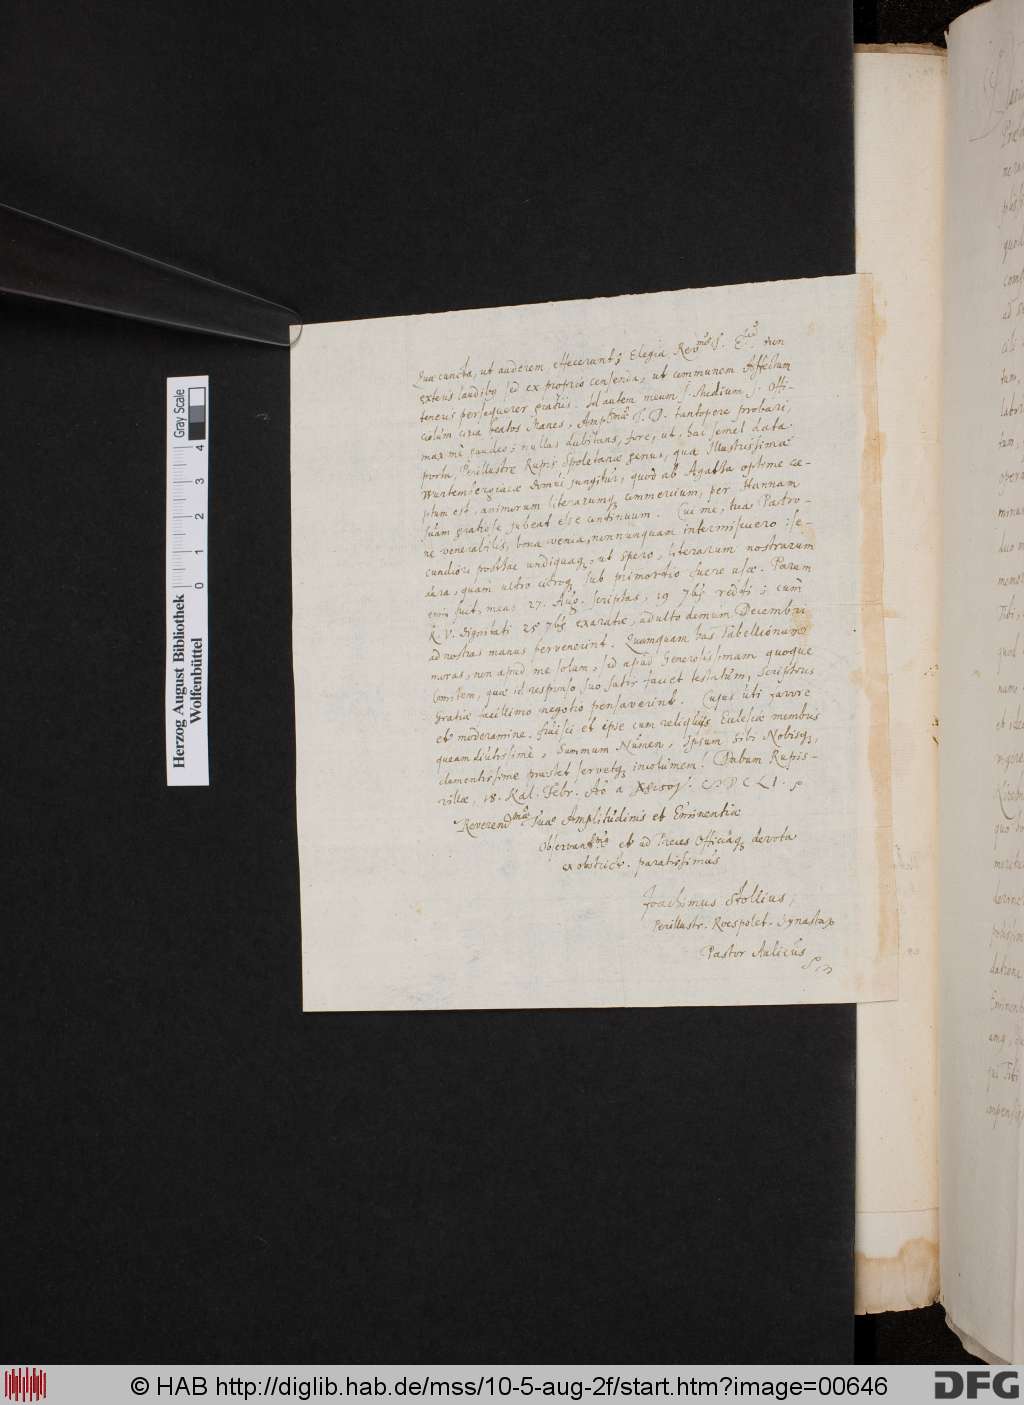 Quæ cuncta, ut auderem, effecerunt; Elegia, Revmæ S. Tuæ, non
exteris laudibq sed ex proprio censenda; ut communem Affectum
tenens persequerer gratiis. Id autem meum ∫. Studium ∫. Offi-
ciolum circa beatos Manes, Ampmæ T. D. tantopere probari,
maxime gaudeo; nullus dubitans, fore, ut, hac semel data
porta, Perillustre Rupis Spoletanæ genus, qua Illustrissimæ
Wurtembergiacæ Domui jungitur, quod ab Agatha optime cæ-
ptum est, animorum literarumq commercium, per Hannam
suam gratiose jubeat esse continuum. Cui me, tua Patro-
ne venerabilis, bona venia, nonnunquam intermiscuero; se-
cundiori posthac undiquaq, ut spero, literarum nostrarum
sera, quam ultro citroq sub primordio fuere usæ. Parum
enim fuit, meas 27. Aug. scriptas, 19 7br. reddi; cum
R. V. Dignitati 25 7br. exaratæ, adulto demum Decembri
ad nostras manus pervenerint. Quamquam has Tabellionum
moras, non apud me solum, sed apud Generosissimam quoque
Comitem, quæ id responso suo satis faciet testatum, Scriptus
gratiæ facillimo negotio pensaverint. Cujus uti favore
et moderamine, fruisci et ipse cum religiis Ecclesiæ membris
queam diutissimè, Summum Numen, Ipsum sibi Nobisq,
clementissime præstet servetq incolumem! Dabam Rupis-
villæ, 18. Kal. Febr. Aō a MDCLI.
Reverendmæ Tuæ Amplitudinis et Eminentiæ
Observantmus et ad Preces Officiaq devota
ex obstrict. paratissimus
Joachimus Stollius,
Perillustr. Roespolet. Dynastæ
Pastor Aulicus
Herzog August Bibliothek
Wolfenbüttel
0 1 2 3 4
Gray Scale
© HAB http://diglib.hab.de/mss/10-5-aug-2f/start.htm?image=00646
DFG